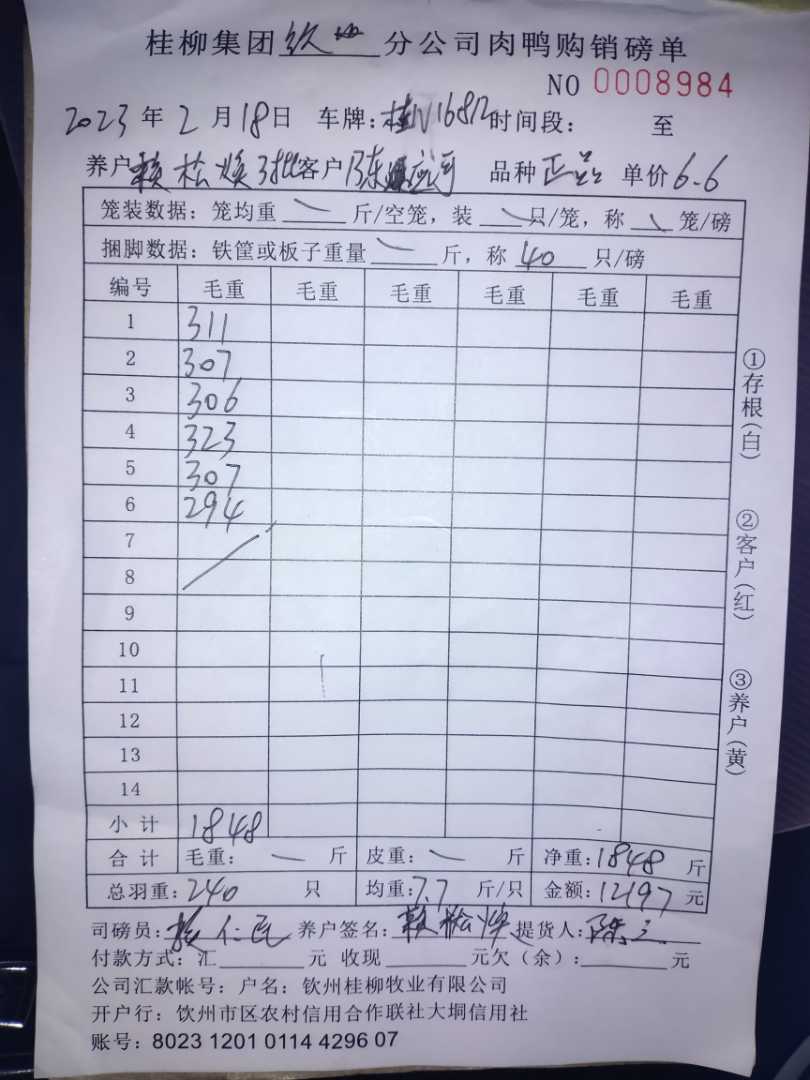 桂柳集团钦州分公司肉鸭购销磅单
NO 0008984
2023年2月18日 车牌:桂N1681 时间段: 至
养户 赖松焕3批 客户 陈 品种 正品 单价6.6
笼装数据:笼均重 斤/空笼,装 只/笼,称 笼/磅
捆脚数据:铁筐或板子重量 斤,称 40 只/磅
编号 毛重 毛重 毛重 毛重 毛重 毛重
1 311
2 307
3 306
4 323
5 307
6 294
7
8
9
10
11
12
13
14
小计 1848
合计 毛重: 斤 皮重: 斤 净重:1848 斤
总羽重:240 只 均重:7.7 斤/只 金额:12197元
司磅员: 仁民 养户签名:赖松焕 提货人:陈
付款方式:汇 元 收现 元欠(余): 元
公司汇款帐号:户名:钦州桂柳牧业有限公司
开户行:钦州市区农村信用合作联社大垌信用社
账号:8023 1201 0114 4296 07
①存根(白)
②客户(红)
③养户(黄)